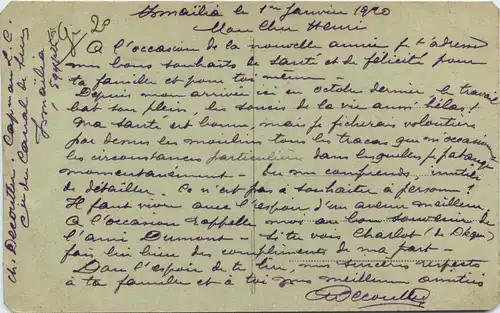 Ismailia le 1er Janvier 1920
Mon Cher Henri
A l'occasion de la nouvelle année je t'adresse
mes bons souhaits de santé et de félicité pour
ta famille et pour toi même.
Depuis mon arrivée ici en octobre dernier, le travail
bat son plein, les soucis de la vie aussi hélas!
Ma santé est bonne mais je ficherais volontiers
par dessus les moulins tous les tracas que m'occasionnent
les circonstances particulières dans lesquelles je patauge
momentanément - Tu me comprends, inutile
de détailler. Ce n'est pas à souhaiter à personne!
Il faut vivre avec l'espoir d'un avenir meilleur.
A l'occasion rappelle moi au bon souvenir de
l'ami Dumont - Si tu vois Charlot (de
fais lui bien des compliments de ma part -
Dans l'espoir de te lire, mes sincères respects
à ta famille et à toi mes meilleures amitiés
Decoutter
Ch. Decoutter Cap. au L.C.
Cie du Canal de Suez
Ismailia
Egypte